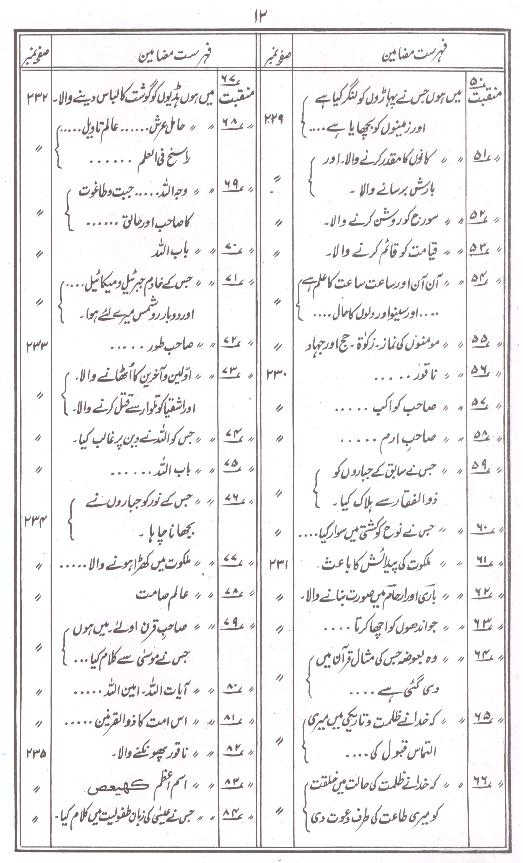 ۱۲
فہرست مضامین صفحہ نمبر
۵۰ منقبت میں ہوں جس نے پہاڑوں کو لنگر کیا ہے
اور زمینوں کو بچھایا ہے .... ۲۲۹
〃 ۵۱ 〃 〃 کانوں کا مقدر کرنے والا۔ اور
بارش برسانے والا۔ 〃
〃 ۵۲ 〃 〃 سورج کو روشن کرنے والا۔ 〃
〃 ۵۳ 〃 〃 قیامت کو قائم کرنے والا۔ 〃
〃 ۵۴ 〃 〃 آن آن اور ساعت ساعت کا علم ہے
.... اور سینوں اور دلوں کا حال .... 〃
〃 ۵۵ 〃 〃 مومنوں کی نماز۔ زکوٰة۔ حج اور جہاد 〃
〃 ۵۶ 〃 〃 ناقور ..... ۲۳۰
〃 ۵۷ 〃 〃 صاحب کواکب ..... 〃
〃 ۵۸ 〃 〃 صاحب ارم ..... 〃
〃 ۵۹ 〃 〃 جس نے سابق کے جباروں کو
ذوالفقار سے ہلاک کیا۔ 〃
〃 ۶۰ 〃 〃 جس نے نوح کو کشتی میں سوار کیا .... 〃
〃 ۶۱ 〃 〃 ملکوت کی پیدائش کا باعث۔ ۲۳۱
〃 ۶۲ 〃 〃 باری اور ارحام میں صورت بنانے والا۔ 〃
〃 ۶۳ 〃 〃 جو اندھوں کو اچھا کرتا .... 〃
〃 ۶۴ 〃 〃 وہ بعوضہ جس کی مثال قرآن میں
دی گئی ہے .... 〃
〃 ۶۵ 〃 〃 کہ خدا نے ظلمت و تاریکی میں میری
التماس قبول کی .... 〃
〃 ۶۶ 〃 〃 کہ خدا نے ظلمت کی حالت میں خلقت
کو میری طاعت کی طرف دعوت دی 〃
فہرست مضامین صفحہ نمبر
۶۷ منقبت میں ہوں ہڈیوں کو گوشت کا لباس دینے والا۔ ۲۳۲
〃 ۶۸ 〃 〃 حامل عرش ...... عالم تاویل .....
راسخ فی العلم ...... 〃
〃 ۶۹ 〃 〃 وجہ اللہ ..... جبت و طاغوت
کا صاحب اور خالق ...... 〃
〃 ۷۰ 〃 〃 باب اللہ 〃
〃 ۷۱ 〃 〃 جس کے خادم جبرئیل و میکائیل ....
اور دوبار رد شمس میرے لئے ہوا۔ 〃
〃 ۷۲ 〃 〃 صاحب طور ..... ۲۳۳
〃 ۷۳ 〃 〃 اولین و آخرین کا اُٹھانے والا۔
اور اشقیا کو تلوار سے قتل کرنے والا۔ 〃
〃 ۷۴ 〃 〃 جس کو اللہ نے دین پر غالب کیا۔ 〃
〃 ۷۵ 〃 〃 باب اللہ ...... 〃
〃 ۷۶ 〃 〃 جس کے نور کو جباروں نے
بجھانا چاہا۔ ۲۳۴
〃 ۷۷ 〃 〃 ملکوت میں کھڑا ہونے والا ..... 〃
〃 ۷۸ 〃 〃 عالم صامت 〃
〃 ۷۹ 〃 〃 صاحب قرن اولے۔ میں ہوں
جس نے موسیٰ سے کلام کیا ... 〃
〃 ۸۰ 〃 〃 آیات اللہ۔ امین اللہ ..... 〃
〃 ۸۱ 〃 〃 اس امت کا ذوالقرنین ..... 〃
〃 ۸۲ 〃 〃 ناقور پھونکنے والا۔ ۲۳۵
〃 ۸۳ 〃 〃 اسم اعظم کھیعص 〃
〃 ۸۴ 〃 〃 جس نے عیسیٰ کی زبان طفولیت میں کلام کیا۔ 〃